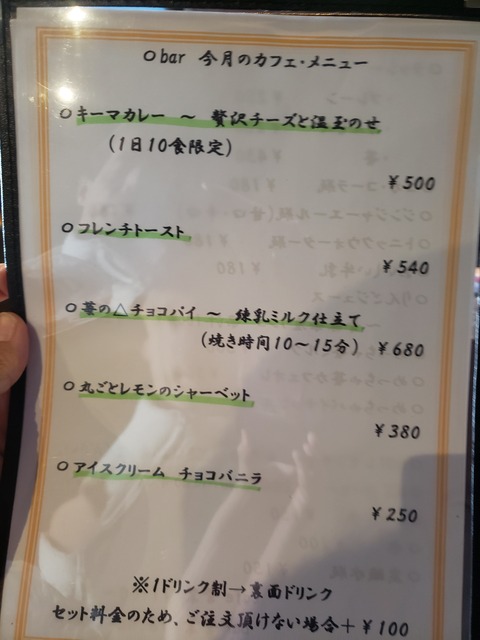 ○bar 今月のカフェ・メニュー
○キーマカレー ～ 贅沢チーズと温玉のせ
(1日10食限定)
¥500
○フレンチトースト
¥540
○苺の△チョコパイ ～ 練乳ミルク仕立て
(焼き時間10～15分) ¥680
○丸ごとレモンのシャーベット
¥380
○アイスクリーム チョコバニラ
¥250
※1ドリンク制→裏面ドリンク
セット料金のため、ご注文頂けない場合+¥100